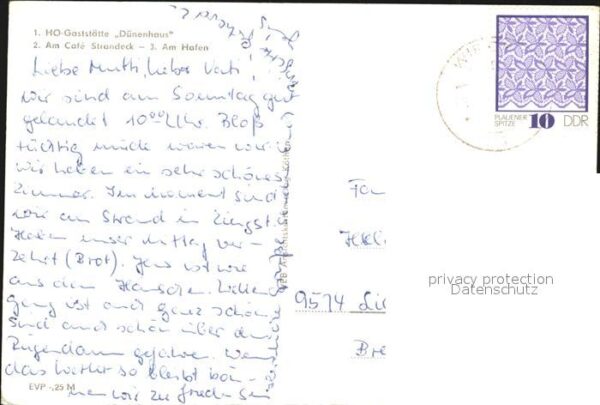 1. HO-Gaststätte „Dünenhaus"
2. Am Café Strandeck – 3. Am Hafen
Liebe Mutti, lieber Vati!
wir sind am Sonntag gut
gelandet 10⁰⁰ Uhr. Bloß
tüchtig müde waren wir.
wir haben ein sehr schönes
Zimmer. Im Moment sind
wir am Strand in Zingst.
Haben unser Mittag ver-
zehrt (Brot). Jens ist wie
aus dem Häuschen. Wellen
gang ist auch ganz schön.
Sind auch schön über den
Rügendamm gefahren. Wenn
das Wetter so bleibt kön-
nen wir zufrieden sein
EVP -,25 M
PLAUENER
SPITZE 10 DDR
Fam
9514
privacy protection
Datenschutz